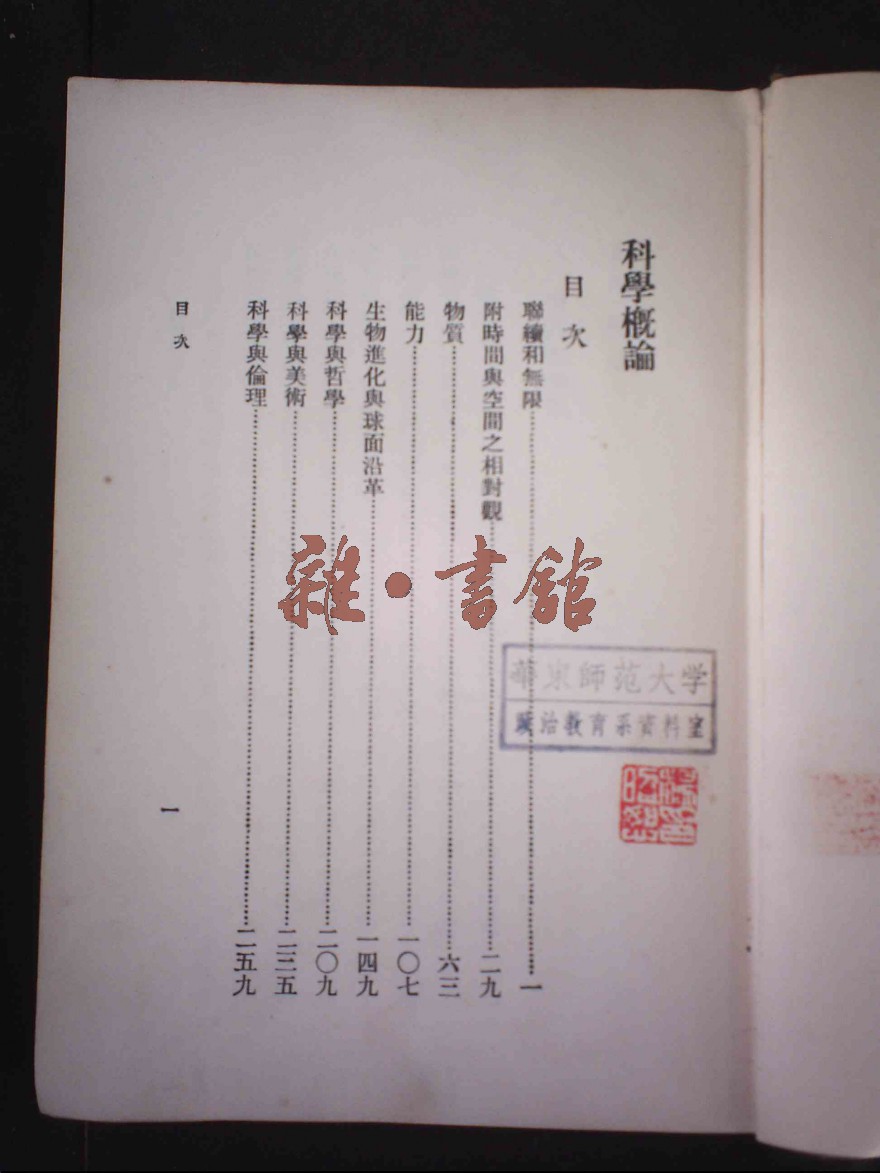 科學概論
目次
聯續和無限……一
附時間與空間之相對觀……二九
物質……六三
能力……一〇七
生物進化與球面沿革……一四九
科學與哲學……二〇九
科學與美術……二三五
科學與倫理……二五九
目次
一
雜·書館
華東師范大学
政治教育系資料室